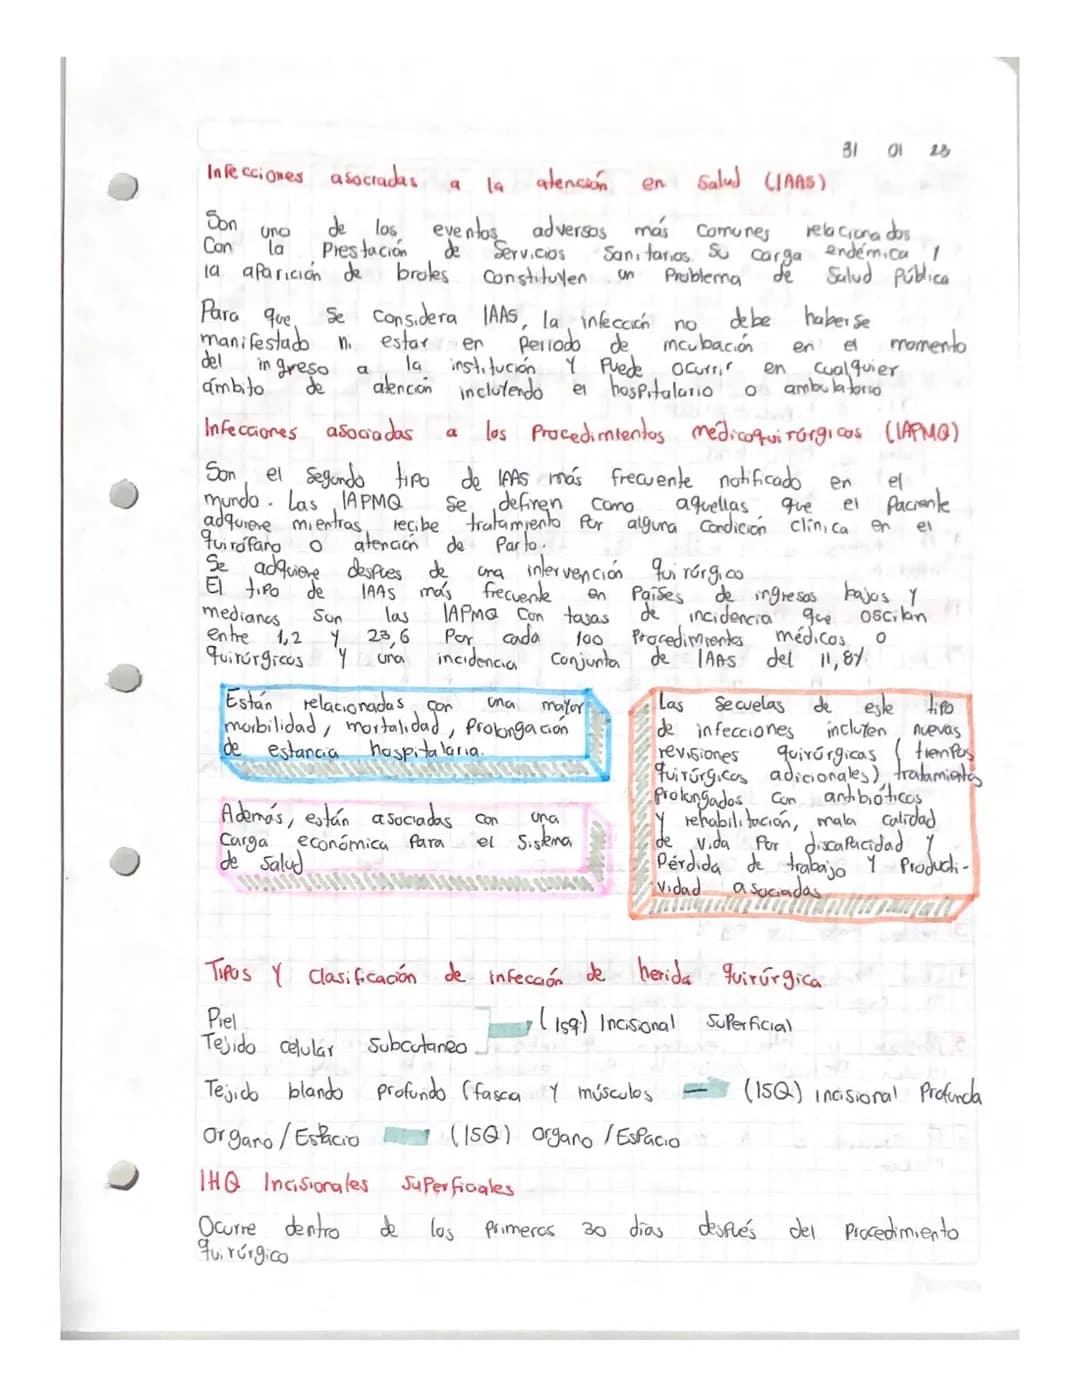 31 01 23
Infecciones asociadas a la atención en Salud (IAAS)
Son uno de los eventos adversos más comunes relacionados
Con la Prestación de Servicios Sanitarios. Su carga endémica y
la aparición de brotes Constituyen un Problema de Salud Pública
Para que se Considera IAAS, la infección no debe haberse
manifestado ni estar en Periodo de incubación en el momento
del ingreso a la institución y Puede ocurrir en cualquier
ámbito de atención incluyendo el hospitalario o ambulatorio
Infecciones asociadas a los Procedimientos médicoquirúrgicos (IAPMQ)
Son el Segundo tipo de IAAS más frecuente notificado en el
mundo. Las IAPMQ se definen como aquellas que el Paciente
adquiere mientras recibe tratamiento Por alguna Condición clínica en el
quirófano o atención de Parto.
Se adquiere despues de una intervención quirúrgica
El tipo de IAAS más frecuente en Países de ingresos bajos y
medianos Son las IAPMQ Con tasas de incidencia que oscilan
entre 1,2 y 23,6 Por cada 100 Procedimientos médicos o
quirúrgicos y una incidencia Conjunta de IAAS del 11,8%.
Están relacionadas con una mayor
morbilidad, mortalidad, Prolongación
de estancia hospitalaria.
Además, están asociadas con una
Carga económica Para el Sistema
de Salud
Las Secuelas de este tipo
de infecciones incluyen nuevas
revisiones quirúrgicas (tiempos
quirúrgicos adicionales), tratamientos
Prolongados Con antibióticos
y rehabilitación, mala calidad
de vida Por discapacidad y
Pérdida de trabajo y Producti-
vidad asociadas
Tipos y Clasificación de infección de herida quirúrgica
Piel
Tejido celular Subcutaneo
(ISQ) Incisional Superficial
Tejido blando profundo (fasca y músculos — (ISQ) incisional Profunda
Organo/Espacio (ISQ) Organo/Espacio
IHQ Incisionales Superficiales
Ocurre dentro de los primeros 30 dias después del Procedimiento
quirúrgico